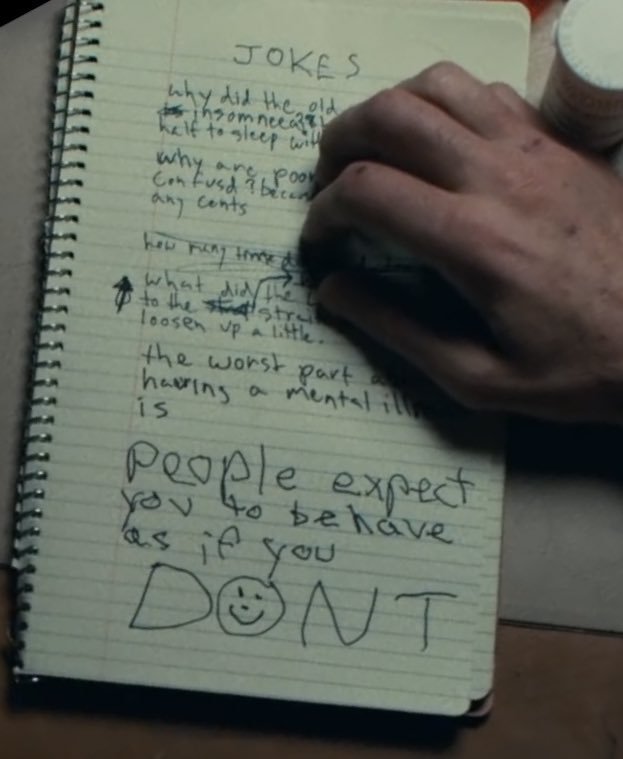 JOKES
why did the old
insomneea?
half to sleep with
why are poor
confusd? becau
any cents
how many
what did the
to the strai
loosen up a little.
the worst part a
having a mental ill
is
people expect
you to behave
as if you
DONT